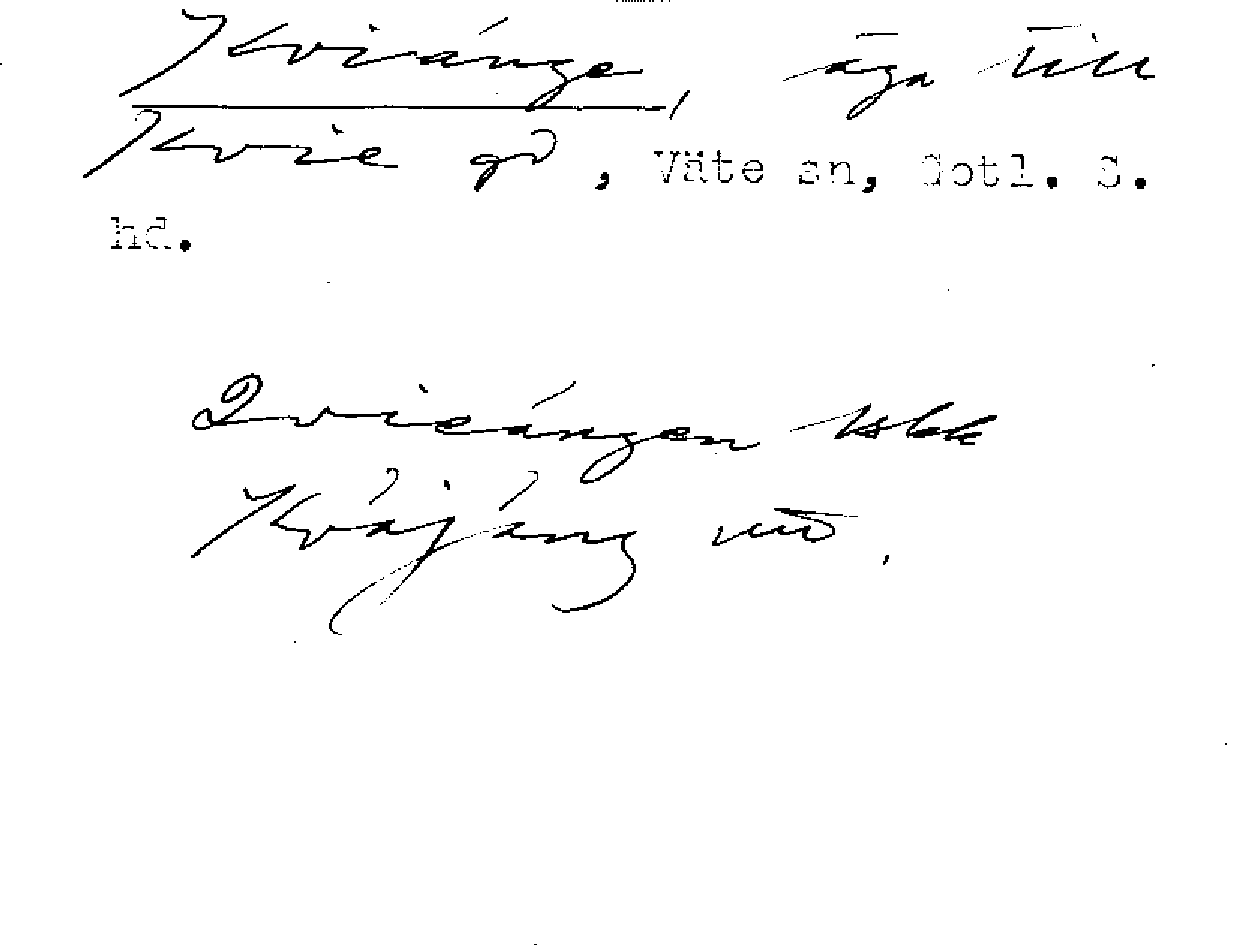 Kviänge, äga till
Kvie gd, Väte sn, Gotl. S.
hd.
Qvieängen kskk
Kväjäng